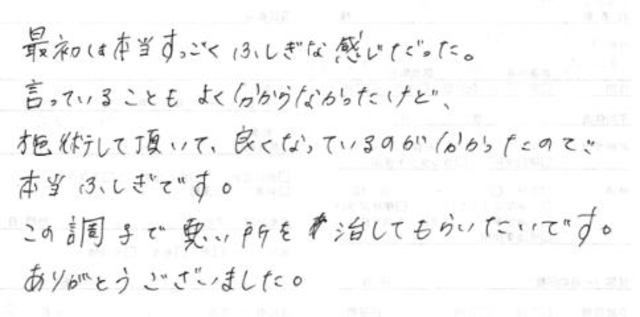 最初は本当すっごくふしぎな感じだった。
言っていることもよく分からなかったけど、
施術して頂いて、良くなっているのが分かったので、
本当ふしぎです。
この調子で悪い所を治してもらいたいです。
ありがとうございました。